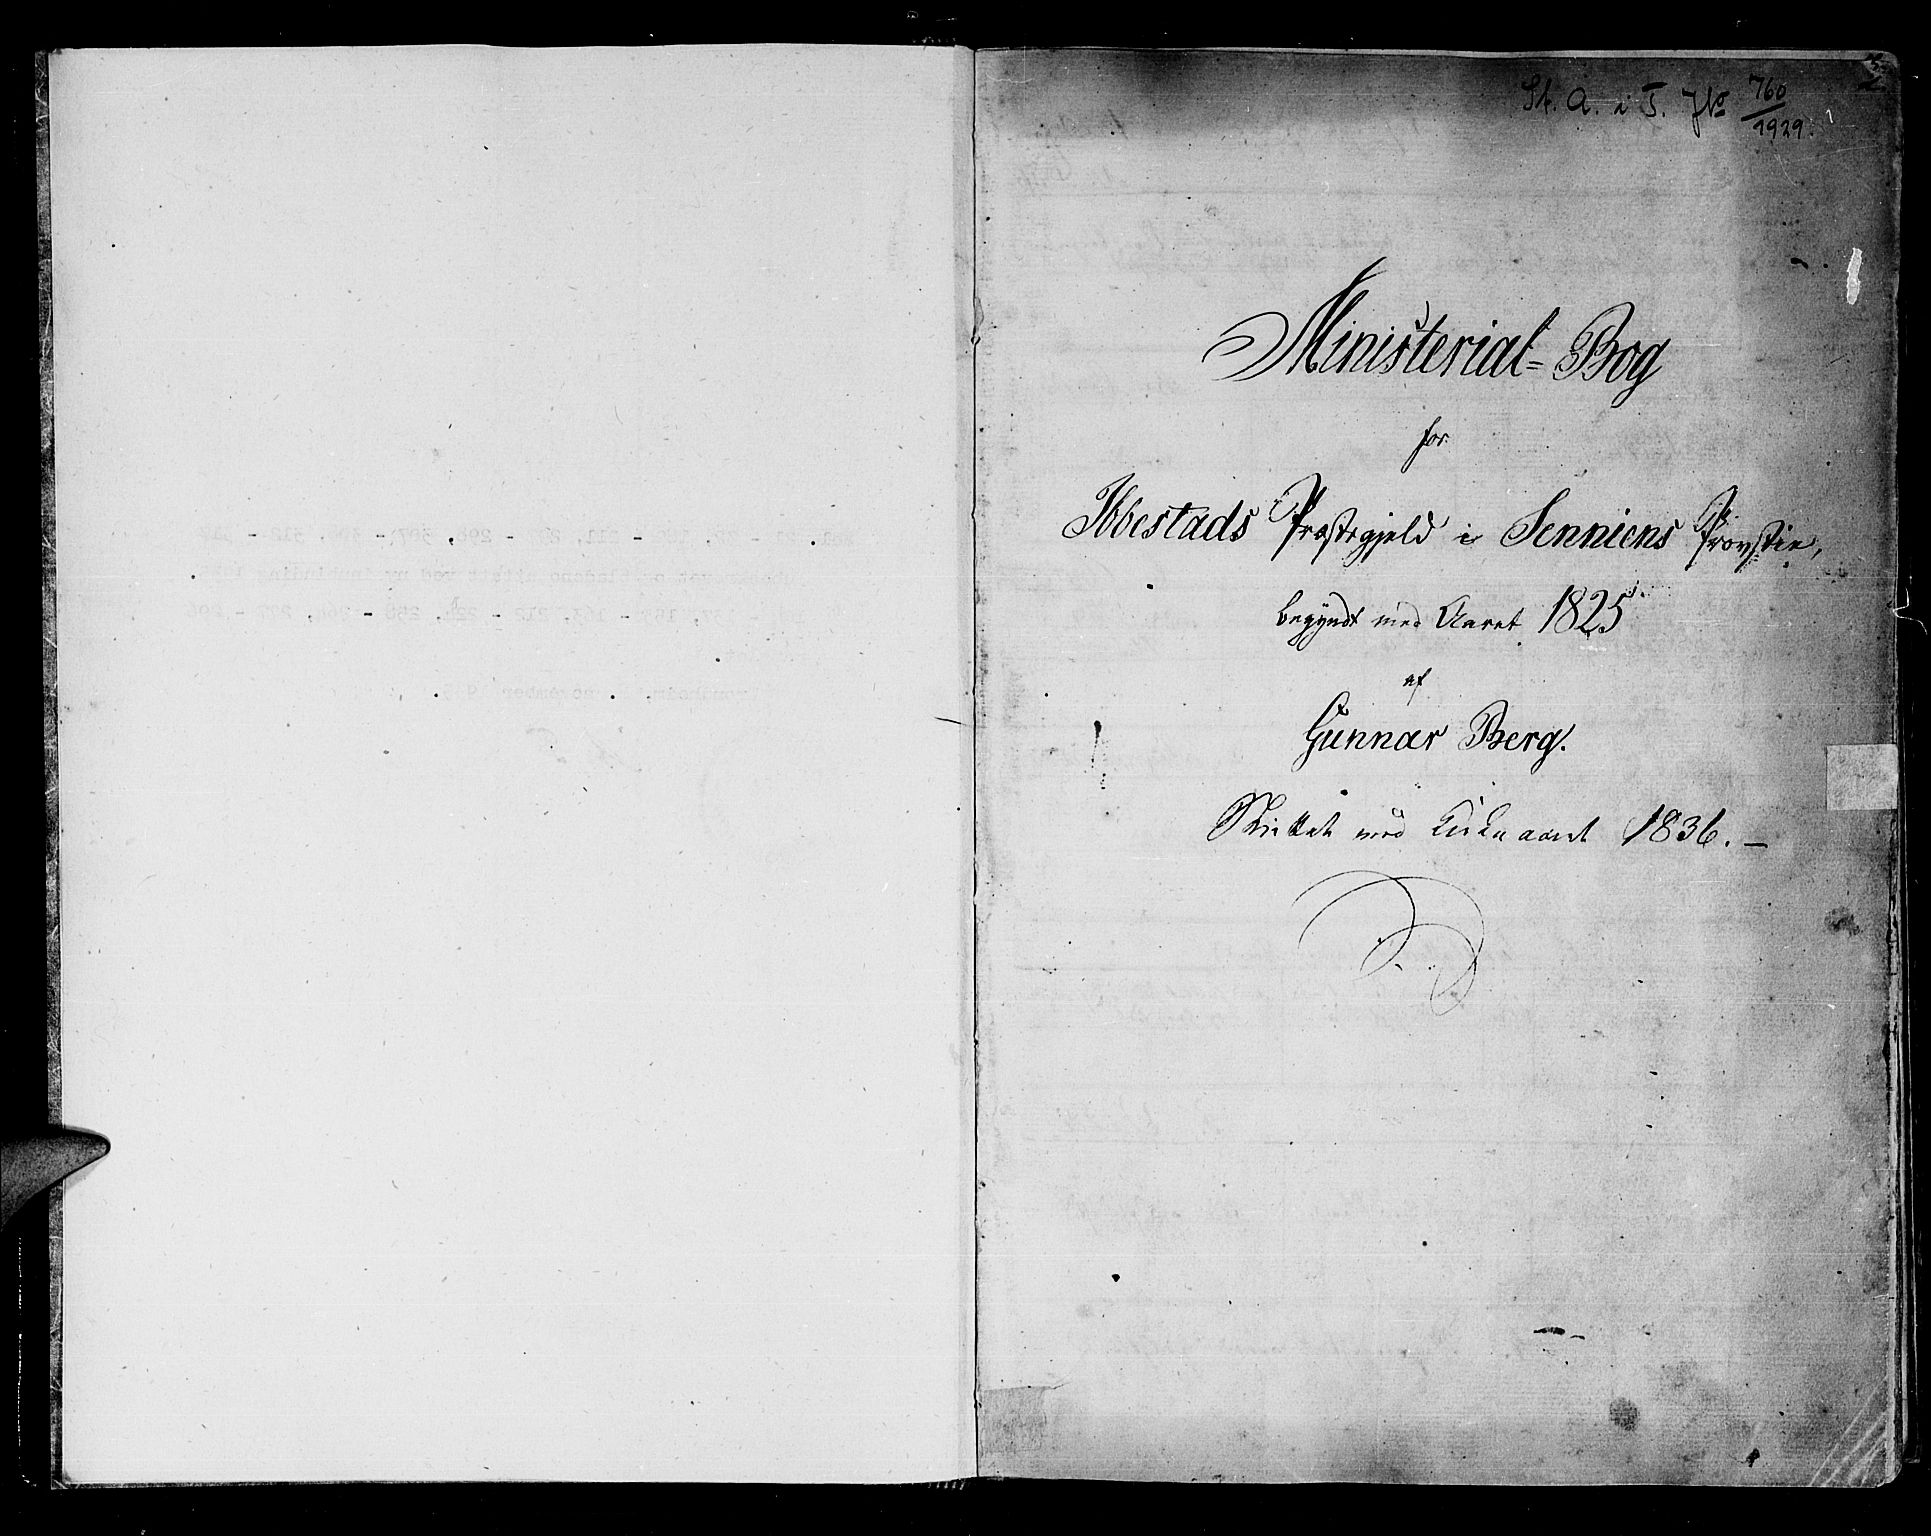 St. A. i T. J№ 760/1929.
Ministerial-Bog
for
Ibbestads Præstegjeld i Senniens Provstie,
begyndt med Aaret 1825
af
Gunnar Berg.
Sluttet med Kirkeaaret 1836.